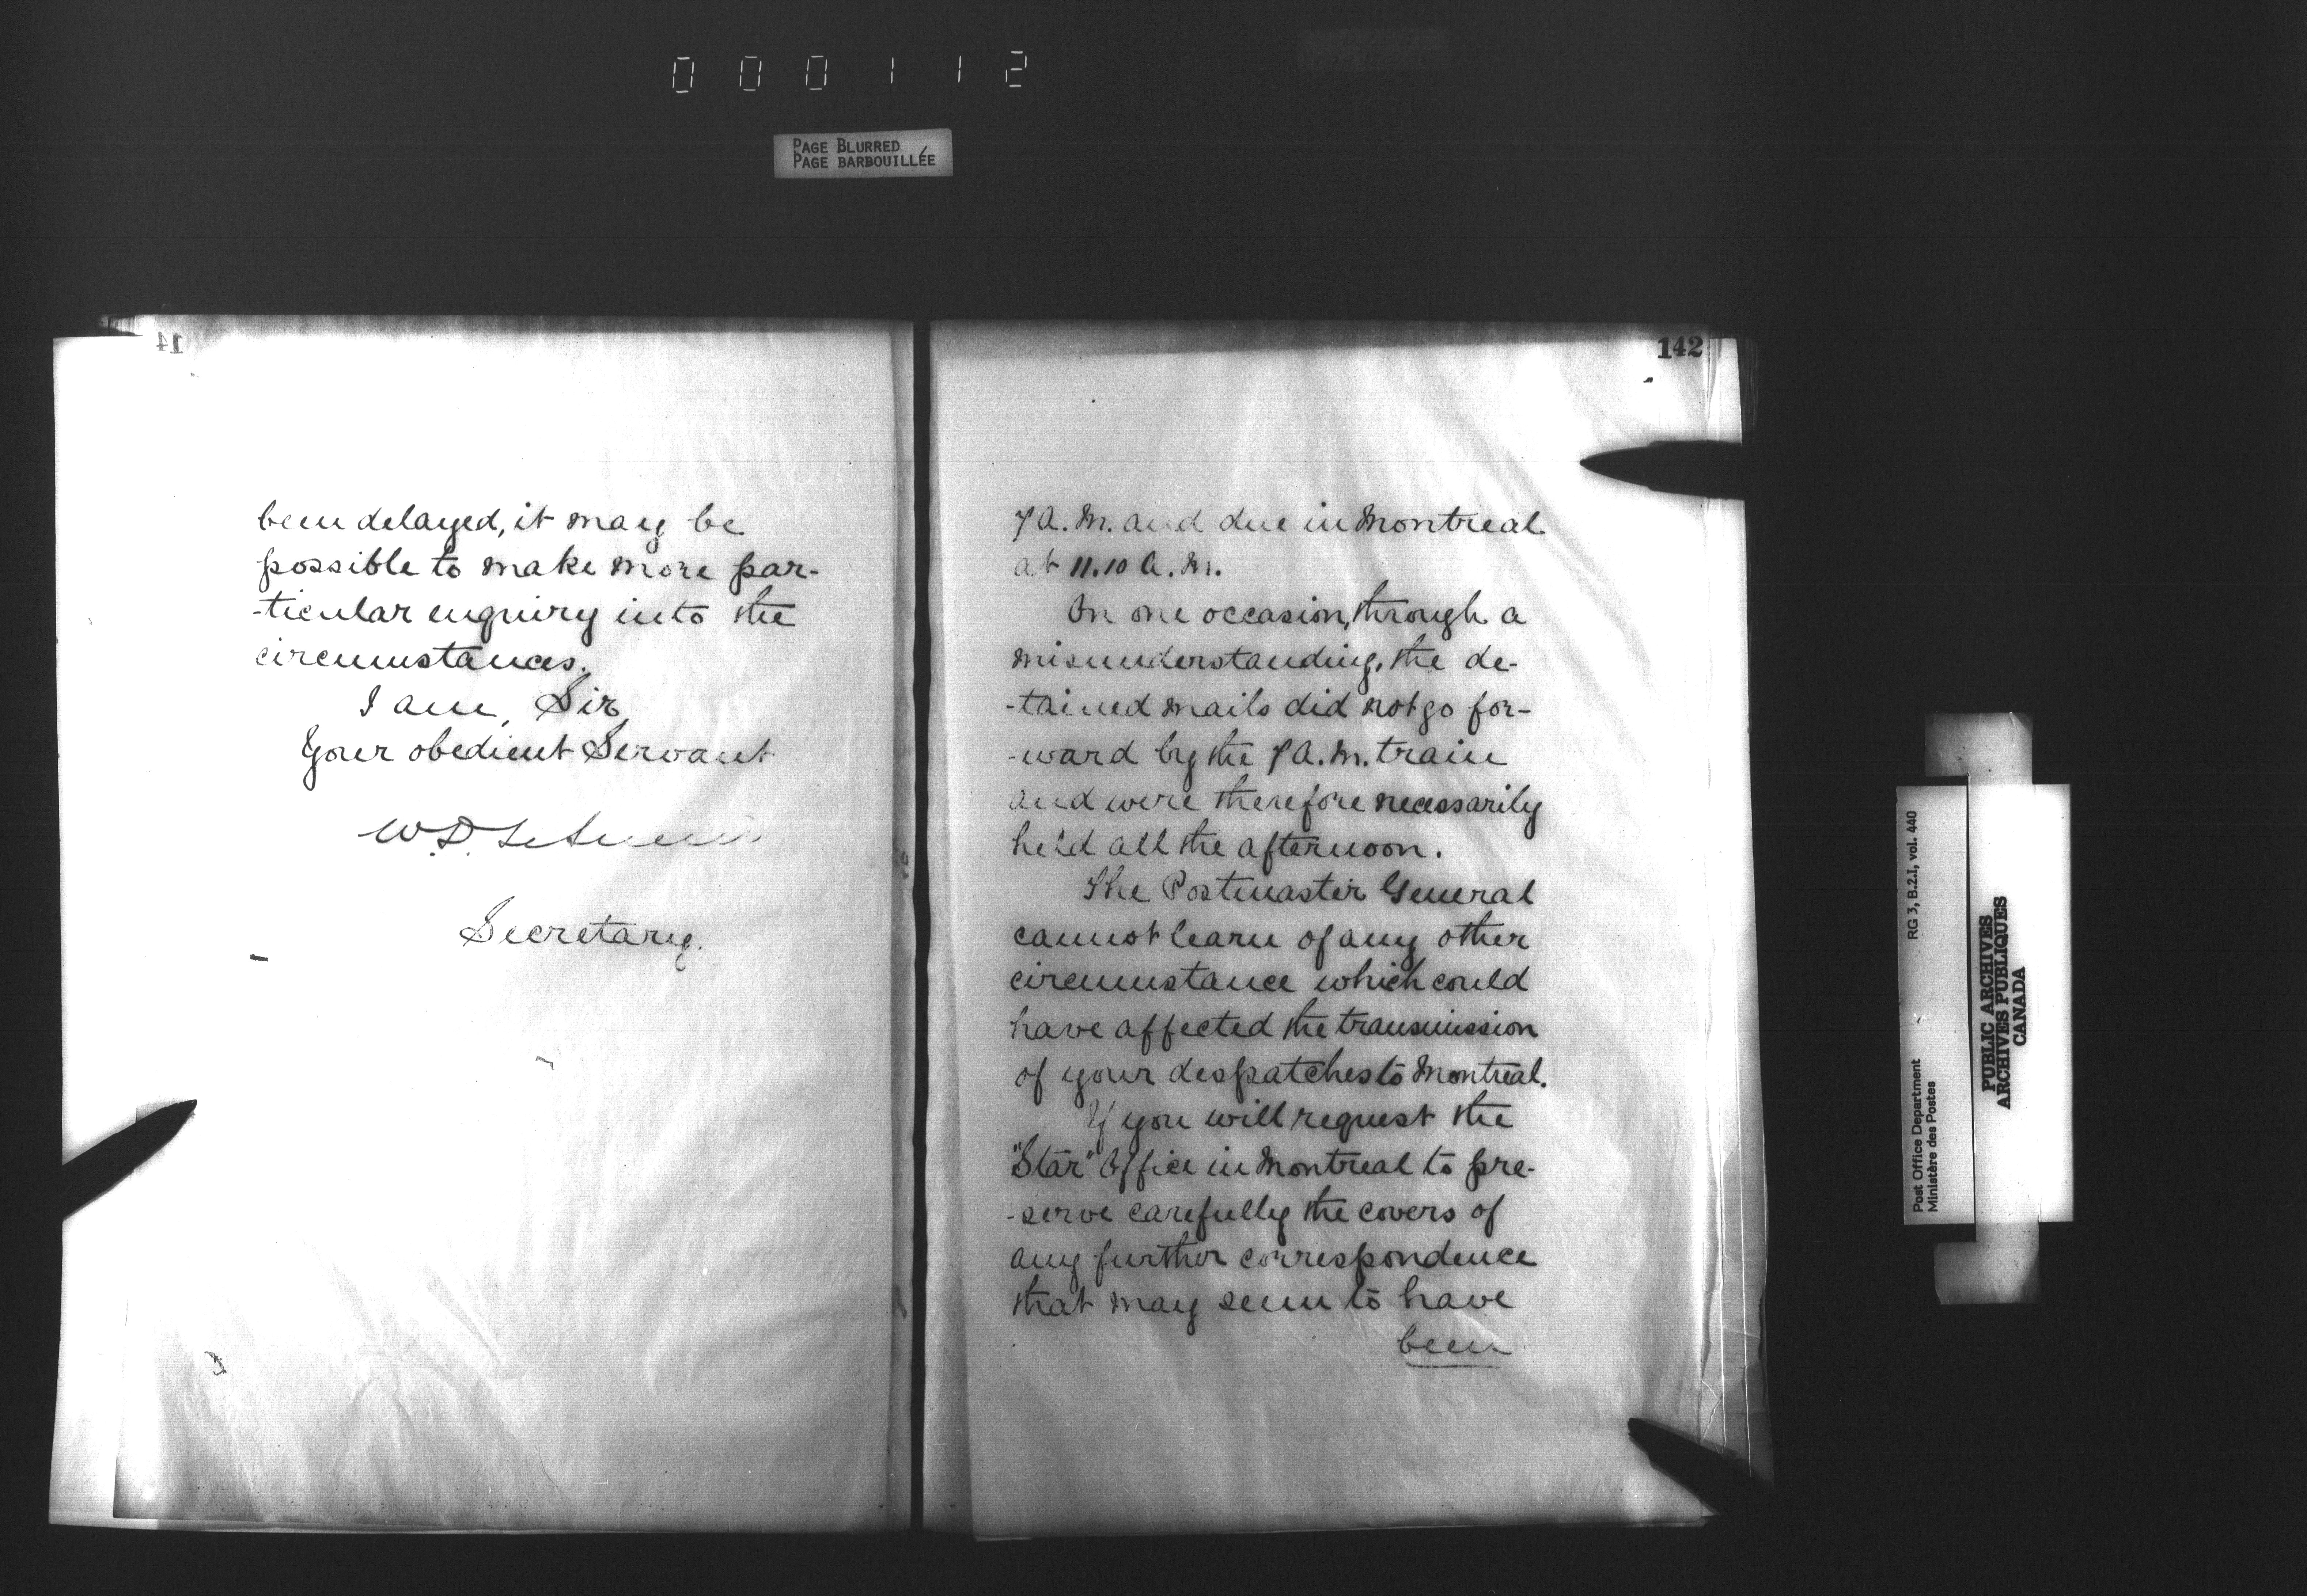 000112
PAGE BLURRED
PAGE BARBOUILLÉE
14
been delayed, it may be
possible to make more par-
-ticular enquiry into the
circumstances.
I am, Sir,
Your obedient Servant
W.D. LeSueur
Secretary.
142
7 A.M. and due in Montreal
at 11.10 A.M.
On one occasion, through a
misunderstanding, the de-
-tained mails did not go for-
-ward by the 7 A.M. train
and were therefore necessarily
held all the afternoon.
The Postmaster General
cannot learn of any other
circumstance which could
have affected the transmission
of your despatches to Montreal.
If you will request the
"Star" Office in Montreal to pre-
-serve carefully the covers of
any further correspondence
that may seem to have
been
Post Office Department
Ministère des Postes
RG 3, B.2.I, vol. 440
PUBLIC ARCHIVES
ARCHIVES PUBLIQUES
CANADA